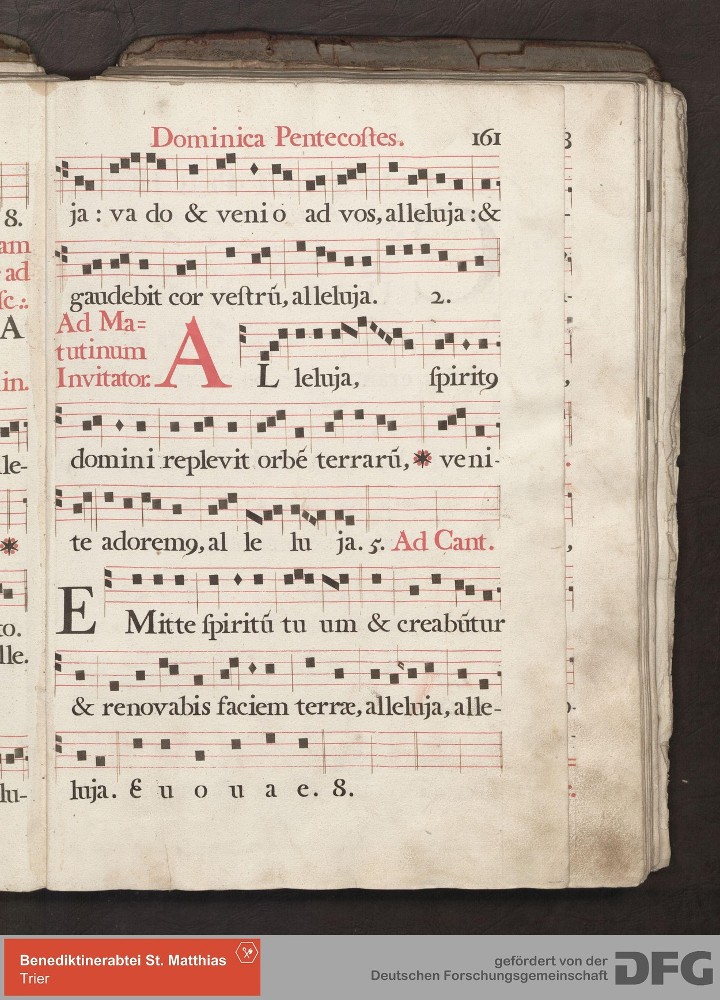 Dominica Pentecoſtes. 161
ja: va do & veni o ad vos, alleluja: &
gaudebit cor veſtrũ, alleluja. 2.
Ad Ma=
tutinum
Invitator.
A L leluja, ſpiritꝯ
domini replevit orbẽ terrarũ, ✷ veni-
te adoremꝯ, al le lu ja. 5. Ad Cant.
E Mitte ſpiritũ tu um & creabũtur
& renovabis faciem terræ, alleluja, alle-
luja. E u o u a e. 8.
8.
am
ad
A
in.
lle-
✷
to.
lle.
lu-
Benediktinerabtei St. Matthias
Trier
gefördert von der
Deutschen Forschungsgemeinschaft
DFG